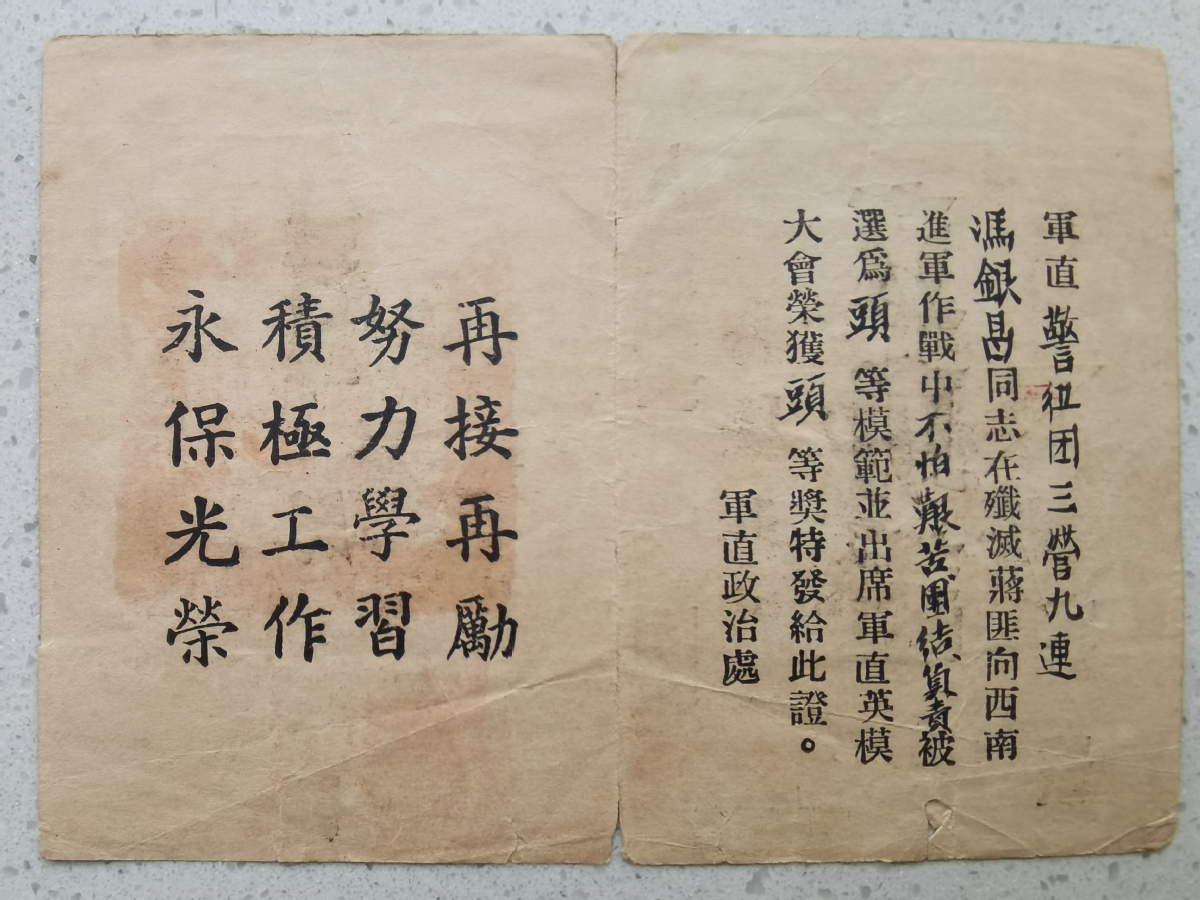 軍直警衛团三營九連
馮銀昌同志在殲滅蔣匪向西南
進軍作戰中不怕艱苦團結負責被
選爲頭等模範並出席軍直英模
大會榮獲頭等獎特發給此證。
軍直政治處
再接再勵
努力學習
積極工作
永保光榮